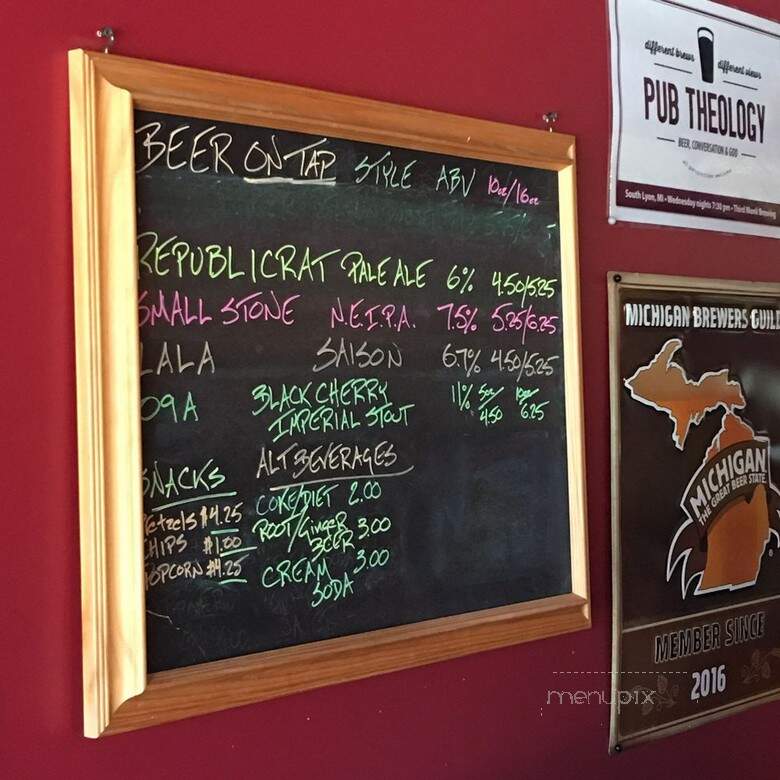 BEER ON TAP STYLE ABV 10oz/16oz
REPUBLICRAT PALE ALE 6% 4.50/5.25
SMALL STONE N.E.I.P.A. 7.5% 5.25/6.25
LALA SAISON 6.7% 4.50/5.25
09A BLACK CHERRY IMPERIAL STOUT 11% 5oz/4.50 10oz/6.25
SNACKS
PRetzels $4.25
CHIPS $1.00
POPCORN $4.25
ALT BEVERAGES
COKE/DIET 2.00
ROOT/GINGER BEER 3.00
CREAM SODA 3.00
different brews different views
PUB THEOLOGY
BEER, CONVERSATION & GOD
South Lyon, MI - Wednesday nights 7:30 pm - Third Monk Brewing
MICHIGAN BREWERS GUILD
MICHIGAN
THE GREAT BEER STATE
MEMBER SINCE
2016
menupix